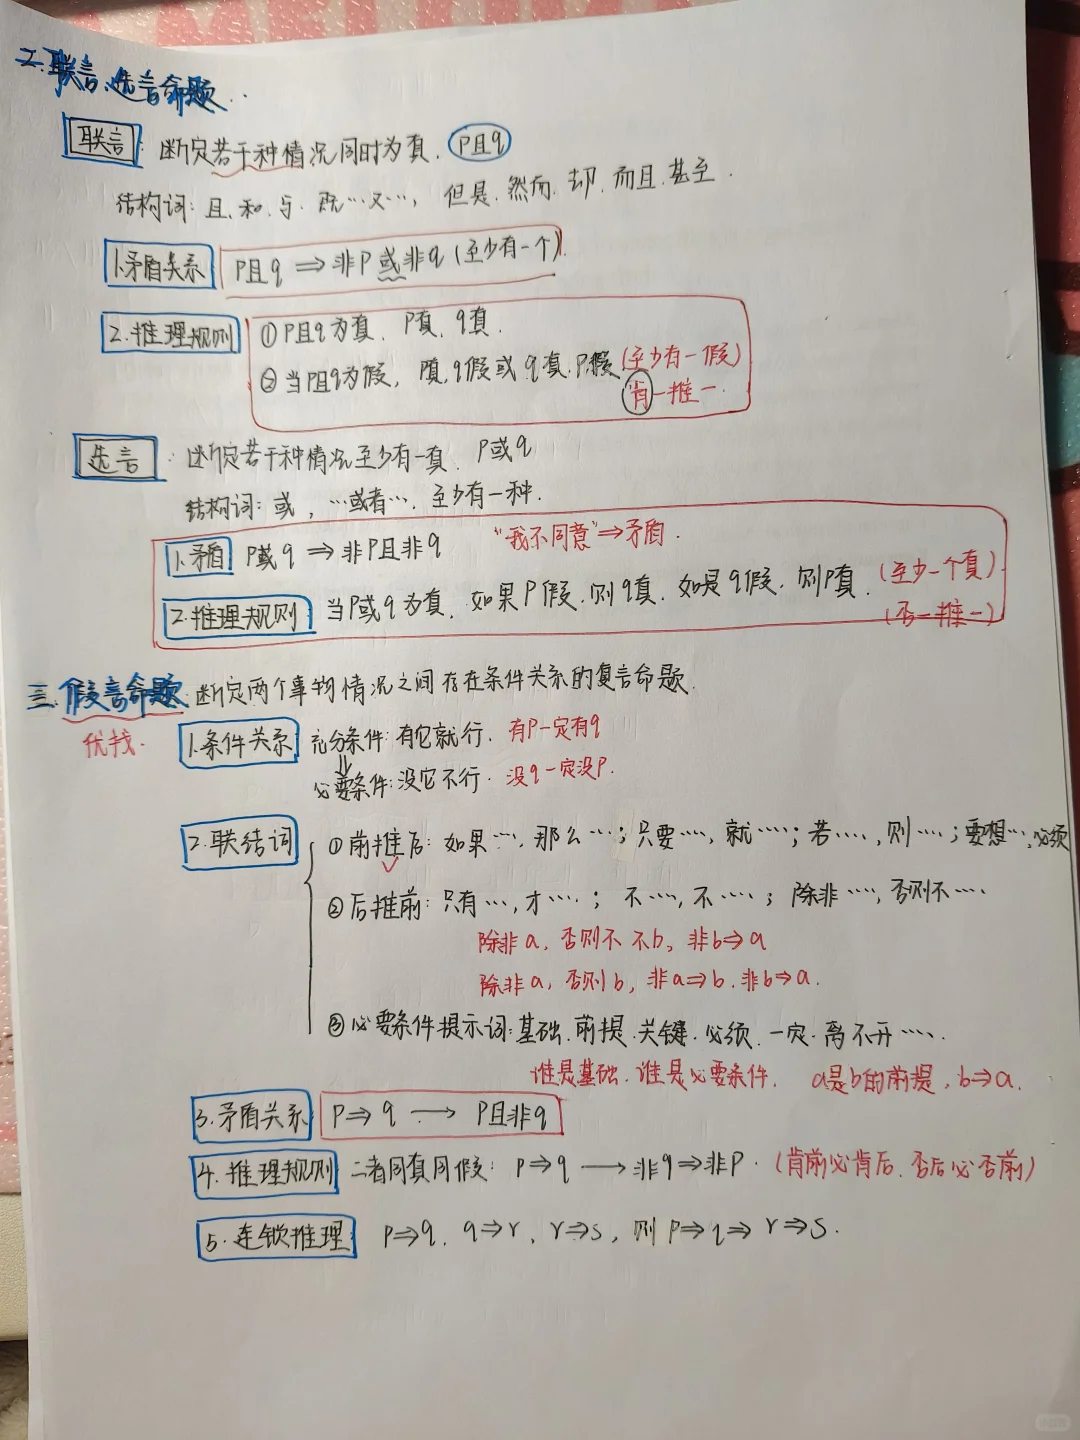 二.联言、选言命题.
联言 断定若干种情况同时为真. P且q
结构词: 且、和、与. 既…又…, 但是、然而、却、而且、甚至.
1.矛盾关系 P且q ⇒ 非P或非q (至少有一个)
2.推理规则 ①P且q为真、P真、q真.
②当P且q为假, P真,q假或q真,P假 (至少有一假)
肯一推一.
选言 : 断定若干种情况至少有一真. P或q
结构词: 或, …或者…, 至少有一种.
1.矛盾 P或q ⇒ 非P且非q "我不同意"⇒矛盾.
2.推理规则 当P或q为真、如果P假,则q真、如是q假,则P真. (至少一个真)
(否一推一)
三.假言命题: 断定两个事物情况之间存在条件关系的复言命题.
优找.
1.条件关系 充分条件: 有它就行. 有P一定有q
⇓
必要条件: 没它不行. 没q一定没P.
2.联结词 ①前推后: 如果…, 那么…; 只要…, 就…; 若…, 则…; 要想…,必须
②后推前: 只有…,才…; 不…,不…; 除非…,否则不…
除非a, 否则不 不b, 非b⇒a
除非a, 否则b, 非a⇒b.非b⇒a.
③必要条件提示词: 基础、前提、关键、必须、一定、离不开….
谁是基础.谁是必要条件. a是b的前提, b⇒a.
3.矛盾关系 P⇒q ⟶ P且非q
4.推理规则 二者同真同假: P⇒q ⟶ 非q⇒非P. (肯前必肯后、否后必否前)
5.连锁推理 P⇒q、q⇒r、r⇒s, 则P⇒q⇒r⇒s.